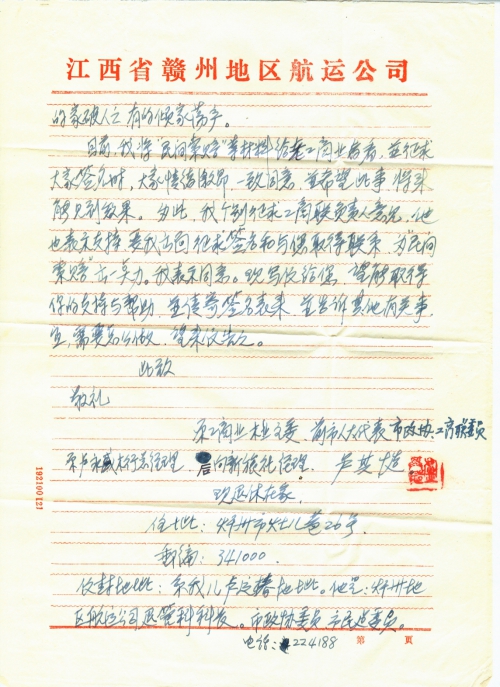 江西省赣州地区航运公司
的家破人亡有的倾家荡产。
目前,我将"民间索赔"等材料给老工商业者看,并征求
大家签名时,大家情绪激昂,一致同意,并希望此事,将来
能见到效果。为此,我个别征求工商联负责人意见,他
也表示支持,要我出面征求签名和与你取得联系,为"民间
索赔"出一单力。我表示同意。现写信给你,望能取得
你的支持与帮助,并请寄签名表来,并告诉其他有关事
宜,需要怎么做,望来信告之。
此致
敬礼
原工商业木业主委、前市人大代表市政协、工商联委员
原卢永盛木行总经理、后向新德经理。卢其
现退休在家。
住址:赣州市灶儿巷26号
邮编:341000.
信封地址:系我儿卢定椿地址。他是:赣州地
区航运公司运管科科长。市政协委员、市民建委员。
电话:224188
第 页
192100121